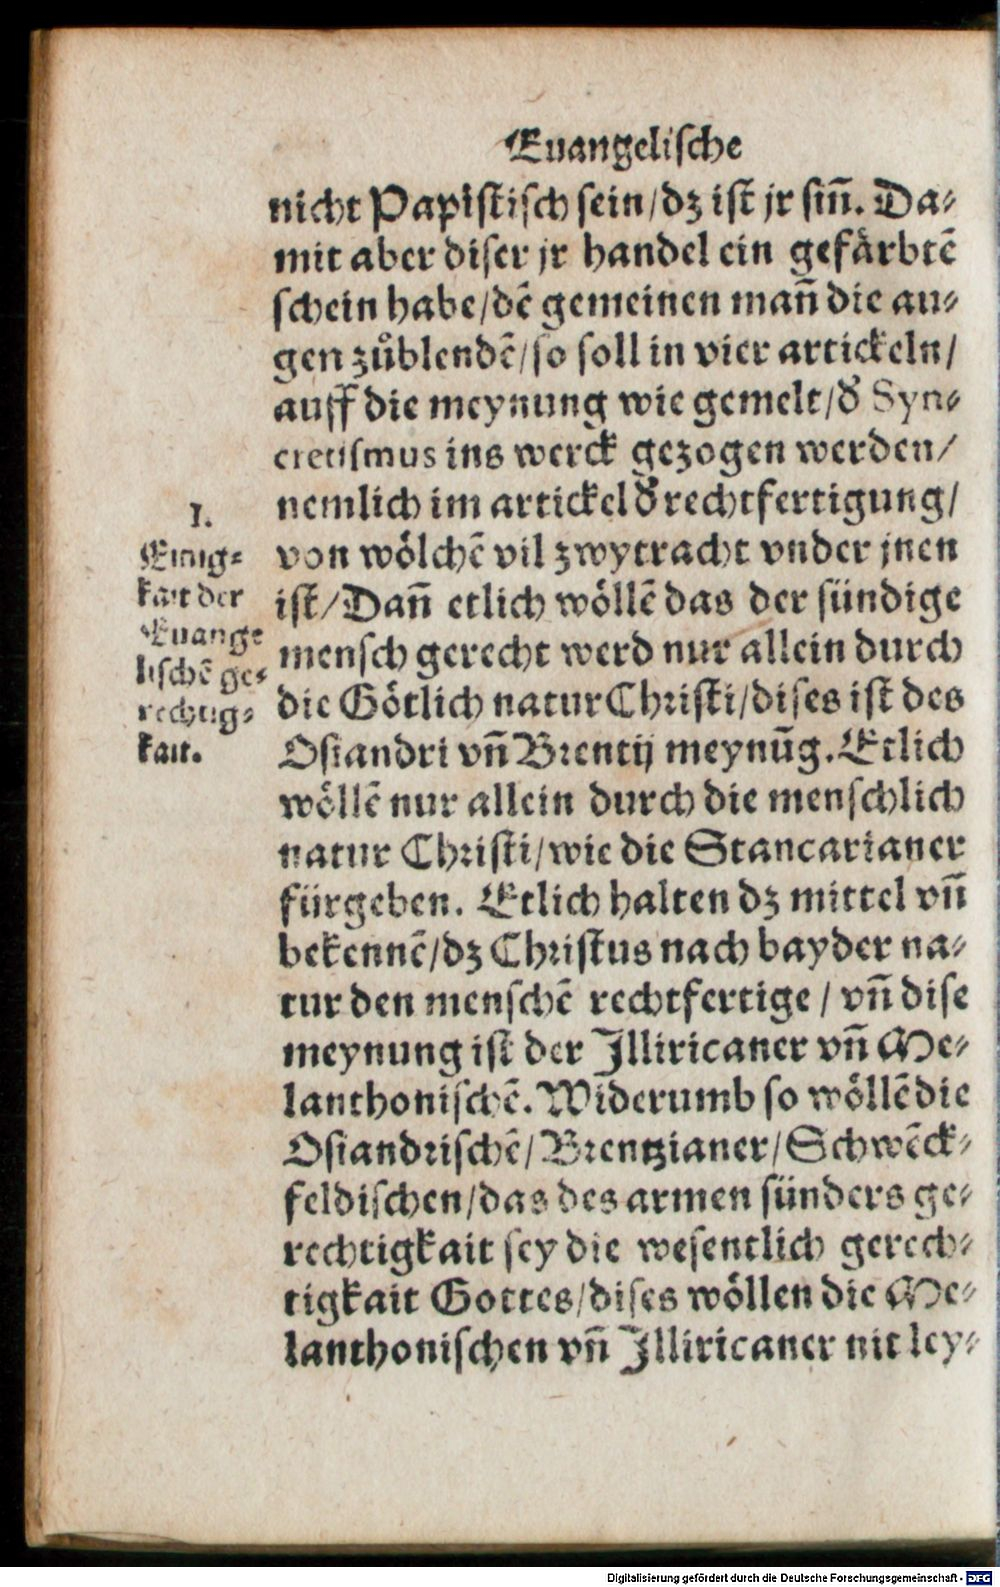 Euangelische
nicht Papistisch sein/dz ist jr siñ. Da⸗
mit aber diser jr handel ein gefärbtē
schein habe/dē gemeinen mañ die au⸗
gen zůblendē/so soll in vier artickeln/
auff die meynung wie gemelt/ď Syn⸗
cretismus ins werck gezogen werden/
nemlich im artickel ď rechtfertigung/
von wölchē vil zwytracht vnder jnen
ist/Dañ etlich wöllē das der sündige
mensch gerecht werd nur allein durch
die Götlich natur Christi/dises ist des
Osiandri vñ Brentij meynūg. Etlich
wöllē nur allein durch die menschlich
natur Christi/wie die Stancarianer
fürgeben. Etlich halten dz mittel vñ
bekennē/dz Christus nach bayder na⸗
tur den menschē rechtfertige / vñ dise
meynung ist der Illiricaner vñ Me⸗
lanthonischē. Widerumb so wöllē die
Osiandrischē/Brentzianer/Schwēck⸗
feldischen/das des armen sünders ge⸗
rechtigkait sey die wesentlich gerech⸗
tigkait Gottes/dises wöllen die Me⸗
lanthonischen vñ Illiricaner nit ley⸗
I.
Einig⸗
kait der
Euange
lischē ge⸗
rechtig⸗
kait.
Digitalisierung gefördert durch die Deutsche Forschungsgemeinschaft - DFG